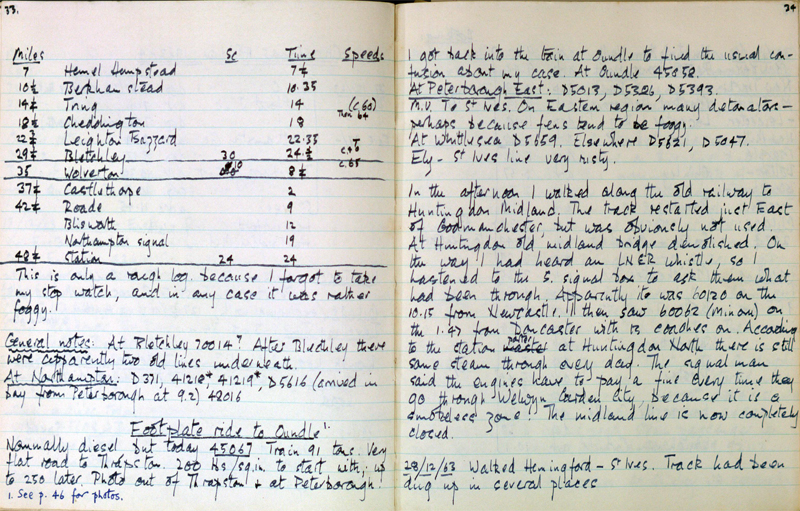 33.
Miles Sc Time Speeds
7 Hemel Hempstead 7½
10½ Berkhamstead 10.35
14¼ Tring 14 (c.60)
18½ Cheddington 18 Then 64
22¾ Leighton Buzzard 22.35
29¼ Bletchley 30 24.½
35 Wolverton 8½ c.65
37¼ Castlethorpe 2
42¼ Roade 9
Blisworth 12
Northampton signal 19
48¼ station 24 24
This is only a rough log, because I forgot to take
my stop watch, and in any case it was rather
foggy.
General notes: At Bletchley 70014? After Bletchley there
were apparently two old lines underneath.
At Northampton: D371, 41218* 41219*, D5616 (arrived in
bay from Peterborough at 9.2) 48016
Footplate ride to Oundle¹·
Normally diesel but today 45067 Train 91 tons. Very
flat road to Thrapston. 200 lbs/sq.in. to start with, up
to 250 later. Photo out of Thrapston & at Peterborough.
1. See p. 46 for photos.
34
I got back into the train at Oundle to find the usual con-
fusion about my case. At Oundle 45058.
At Peterborough East: D5013, D5326, D5393.
M.U. To St Ives. On Eastern region many detonators –
perhaps because fens tend to be foggy.
At Whittlesea D5659. Elsewhere D5621, D5047.
Ely – St Ives line very rusty.
In the afternoon I walked along the old railway to
Huntingdon Midland. The track restarted just East
of Godmanchester, but was obviously not used.
At Huntingdon old midland bridge demolished. On
the way I had heard an LNER whistle, so I
hastened to the S. signal box to ask them what
had been through. Apparently it was 60120 on the
10.15 from Newcastle. I then saw 60062 (Minoru) on
the 1.47 from Doncaster with 13 coaches on. According
to the station porter at Huntingdon North there is still
some steam through every day. The signal man
said the engines have to pay a fine every time they
go through Welwyn Garden City, because it is a
smokeless zone! The midland line is now completely
closed.
28/12/63 Walked Hemingford – St Ives. Track had been
dug up in several places